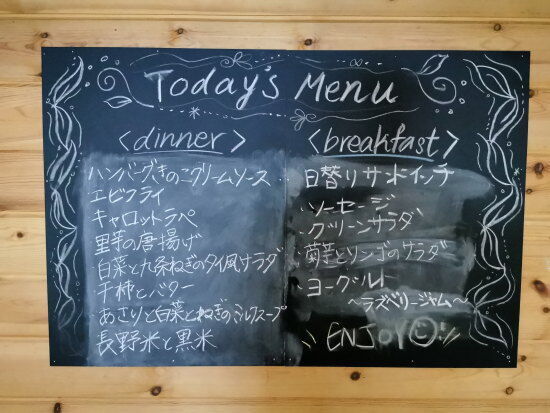 Today's Menu
<dinner>
ハンバーグきのこクリームソース
エビフライ
キャロットラペ
里芋の唐揚げ
白菜と九条ねぎのタイ風サラダ
干柿とバター
あさりと白菜とねぎのミルクスープ
長野米と黒米
<breakfast>
日替りサンドイッチ
ソーセージ
グリーンサラダ
菊芋とリンゴのサラダ
ヨーグルト
〜ラズベリージャム〜
ENJOY